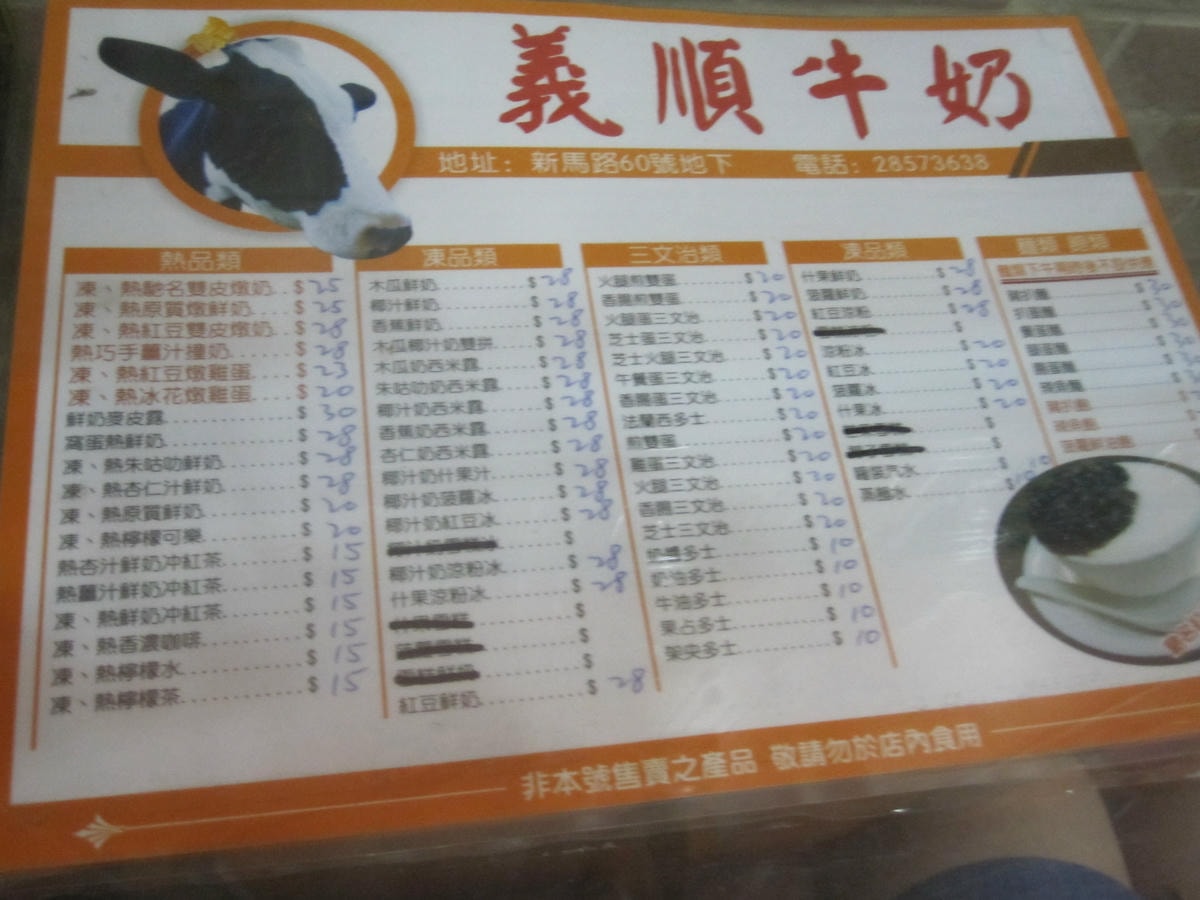 義順牛奶
地址：新馬路60號地下 電話：28573638
熱品類
凍、熱馳名雙皮燉奶 $25
凍、熱原質燉鮮奶 $25
凍、熱紅豆雙皮燉奶 $28
熱巧手薑汁撞奶 $28
凍、熱紅豆燉雞蛋 $23
凍、熱冰花燉雞蛋 $20
鮮奶麥皮露 $30
窩蛋熱鮮奶 $28
凍、熱朱咕叻鮮奶 $28
凍、熱杏仁汁鮮奶 $28
凍、熱原質鮮奶 $20
凍、熱檸檬可樂 $20
熱杏汁鮮奶冲紅茶 $15
熱薑汁鮮奶冲紅茶 $15
凍、熱鮮奶冲紅茶 $15
凍、熱香濃咖啡 $15
凍、熱檸檬水 $15
凍、熱檸檬茶 $15
凍品類
木瓜鮮奶 $28
椰汁鮮奶 $28
香蕉鮮奶 $28
木瓜椰汁奶雙拼 $28
木瓜奶西米露 $28
朱咕叻奶西米露 $28
椰汁奶西米露 $28
香蕉奶西米露 $28
杏仁奶西米露 $28
椰汁奶什果汁 $28
椰汁奶菠蘿冰 $28
椰汁奶紅豆冰 $28
$
椰汁奶涼粉冰 $28
什果涼粉冰 $28
$
$
$
紅豆鮮奶 $28
三文治類
火腿煎雙蛋 $20
香腸煎雙蛋 $20
火腿蛋三文治 $20
芝士蛋三文治 $20
芝士火腿三文治 $20
午餐蛋三文治 $20
香腸蛋三文治 $20
法蘭西多士 $20
煎雙蛋 $20
雞蛋三文治 $20
火腿三文治 $20
香腸三文治 $20
芝士三文治 $20
奶醬多士 $10
奶油多士 $10
牛油多士 $10
果占多士 $10
架央多士 $10
凍品類
什果鮮奶 $28
菠蘿鮮奶 $28
紅豆涼粉 $28
涼粉冰 $20
紅豆冰 $20
菠蘿冰 $20
什果冰 $20
$
$
罐裝汽水
蒸餾水
非本號售賣之產品 敬請勿於店內食用